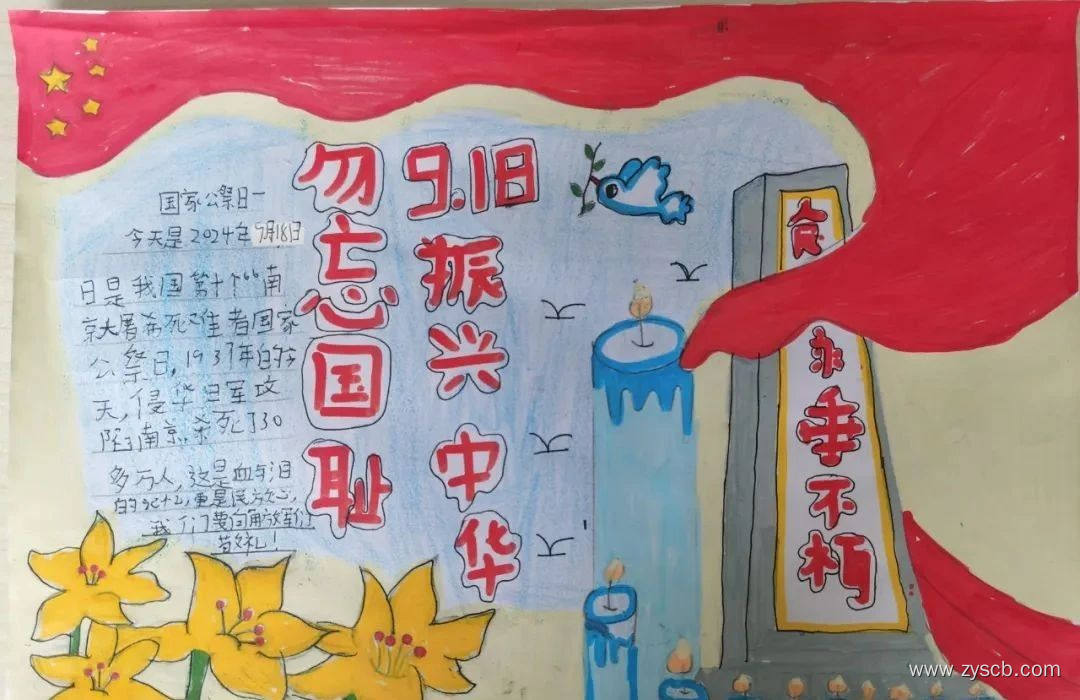 国家公祭日一
今天是2024年9月18日
日是我国第十个“南
京大屠杀死难者国家
公祭日,1937年的
天,侵华日军攻
陷南京.杀死了30
多万人,这是血与泪
的
我们要向解放军们
敬礼!
勿忘国耻
9.18
振兴中华
永垂不朽
www.zyscb.com